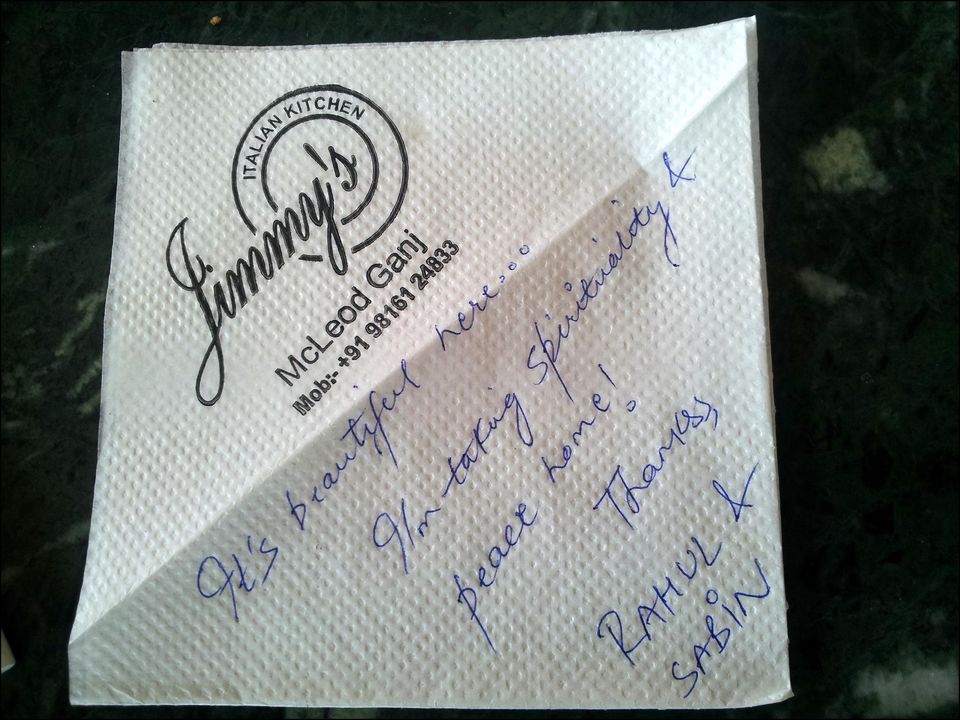 ITALIAN KITCHEN
Jimmy's
McLeod Ganj
Mob:- +91 98161 24833
It's beautiful here....
I'm taking spirituality &
peace home!
Thanks,
RAHUL &
SABIN